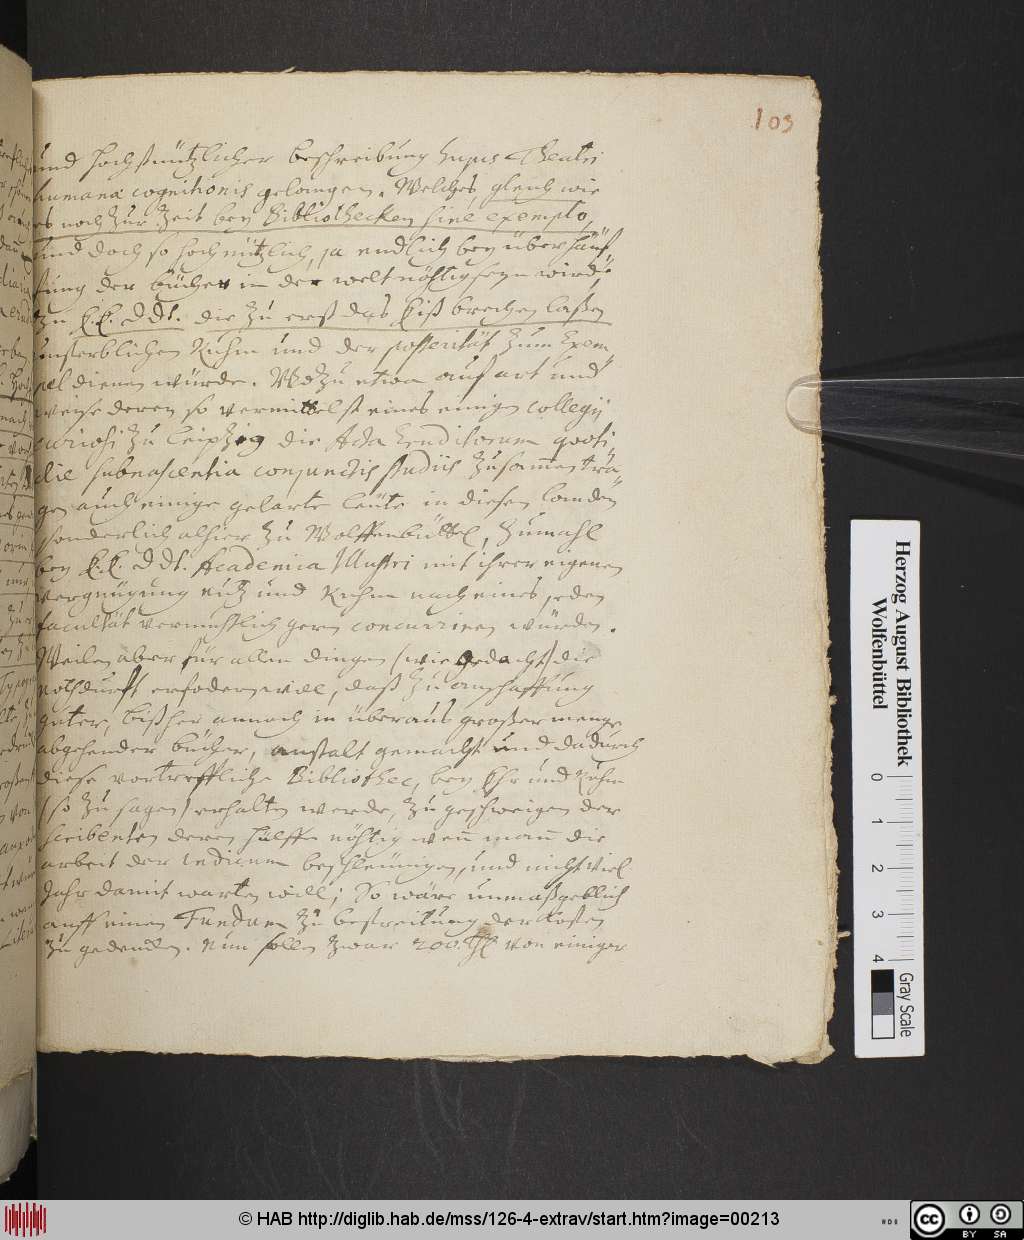 103
und hochstnützlicher beschreibung hujus Theatri
humanæ cognitionis gelangen. Welches, gleich wie
es noch zur Zeit bey Bibliothecken sine exemplo,
und doch so hochnützlich, ja endlich bey überhäuf
fung der bücher in der welt nöhtig seyn wird,
E.E. DDt. die zu erst das Eiß brechen laßen
unsterblichen Ruhm und der posterität zum Exem
pel dienen würde. Wozu etwa auf art und
weise deren so vermittelst eines einigen collegij
curiosi zu Leipzig die Acta Eruditorum quoti
die subnascentia conjunctis studiis zusammen tra
gen auch einige gelarte leute in diesen landen
sonderlich alhier zu Wolffenbüttel, zumahl
bey E.E. DDt. Academia Illustri mit ihrer eigenen
vergnügung nutz und Ruhm nach eines jeden
facultät vermuhtlich gern concurriren würden.
Weilen aber für allen dingen (wie gedacht) die
Nothdurft erfodern will, daß zu anschaffung
guter, bißher annoch in überaus großer menge
abgehender bücher, anstalt gemacht und dadurch
diese vortreffliche Bibliothec, bey Ehr und Ruhm
(so zu sagen) erhalten werde, zu geschweigen der
scribenten deren hülffe nöhtig wenn mann die
arbeit der Indicum beschleunigen, und nicht viel
Jahr damit warten will; So wäre unmaßgeblich
auff einen Fundum zu bestreitung der Kosten
zu gedencken. Nun sollen zwar 200 Thl von einiger
Herzog August Bibliothek
Wolfenbüttel
0 1 2 3 4
Gray Scale
© HAB http://diglib.hab.de/mss/126-4-extrav/start.htm?image=00213
cc BY SA